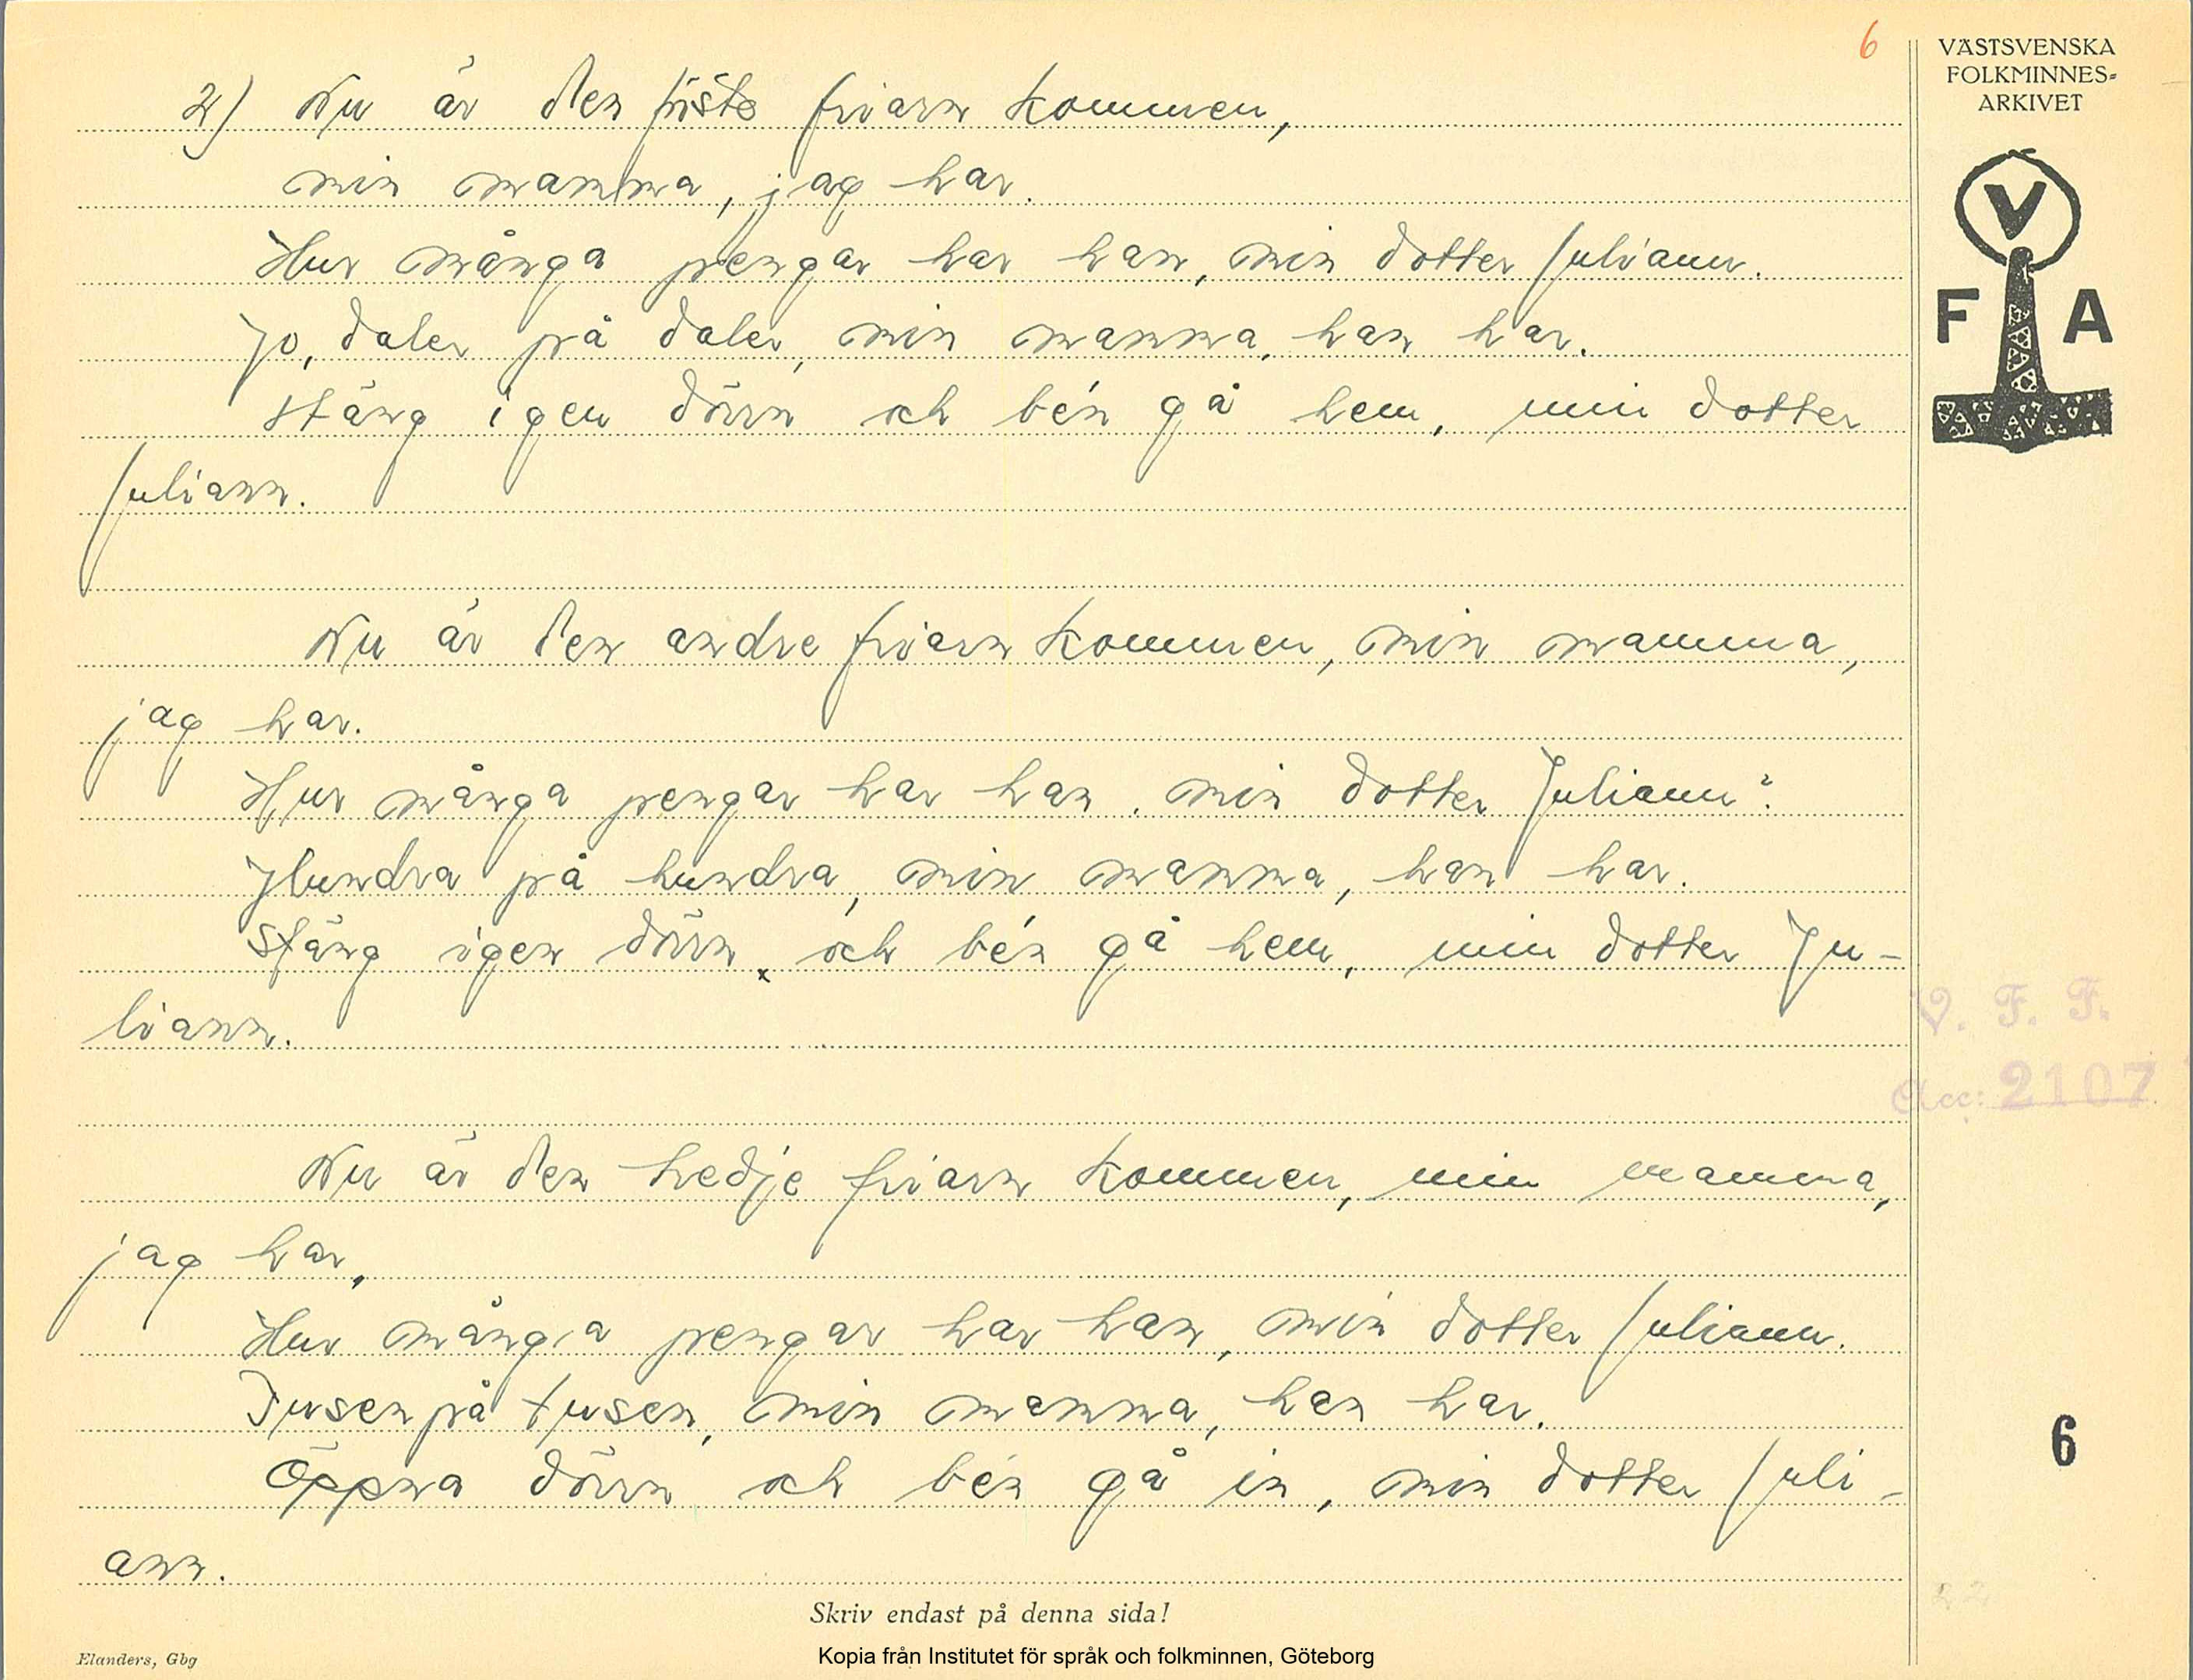 6
VÄSTSVENSKA
FOLKMINNES-
ARKIVET
V
F A
2) Nu är den friarn kommen,
min mamma, jag har.
Hur många pengar har han, min dotter Juliann.
Jo, daler på daler, min mamma, han har.
Stäng igen dörrn och bén gå hem, min dotter
Juliann.
Nu är den andre friarn kommen, min mamma,
jag har.
Hur många pengar har han, min dotter Juliann?
Hundra på hundra, min mamma, han har.
Stäng igen dörrn, och bén gå hem, min dotter Ju-
liann.
V. F. F.
Acc: 2107
Nu är den tredje friarn kommen, min mamma,
jag har.
Hur många pengar har han, min dotter Juliann.
Tusen på tusen, min mamma, han har.
Öppna dörrn och bén gå in, min dotter Juli-
ann.
6
Skriv endast på denna sida!
Elanders, Gbg
Kopia från Institutet för språk och folkminnen, Göteborg